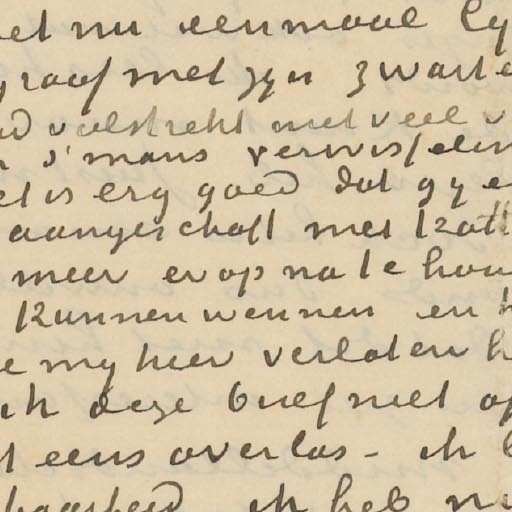 et nu eenmaal ly
graaf met zyn zwarte
d volstrekt met veel v
s'mans verwisselin
et is erg goed dat gy e
aangeschaft met kat
meer er op na te hou
kunnen wennen en h
e my hier verlaten h
ik deze brief niet op
t eens overlas - ik b
ik heb